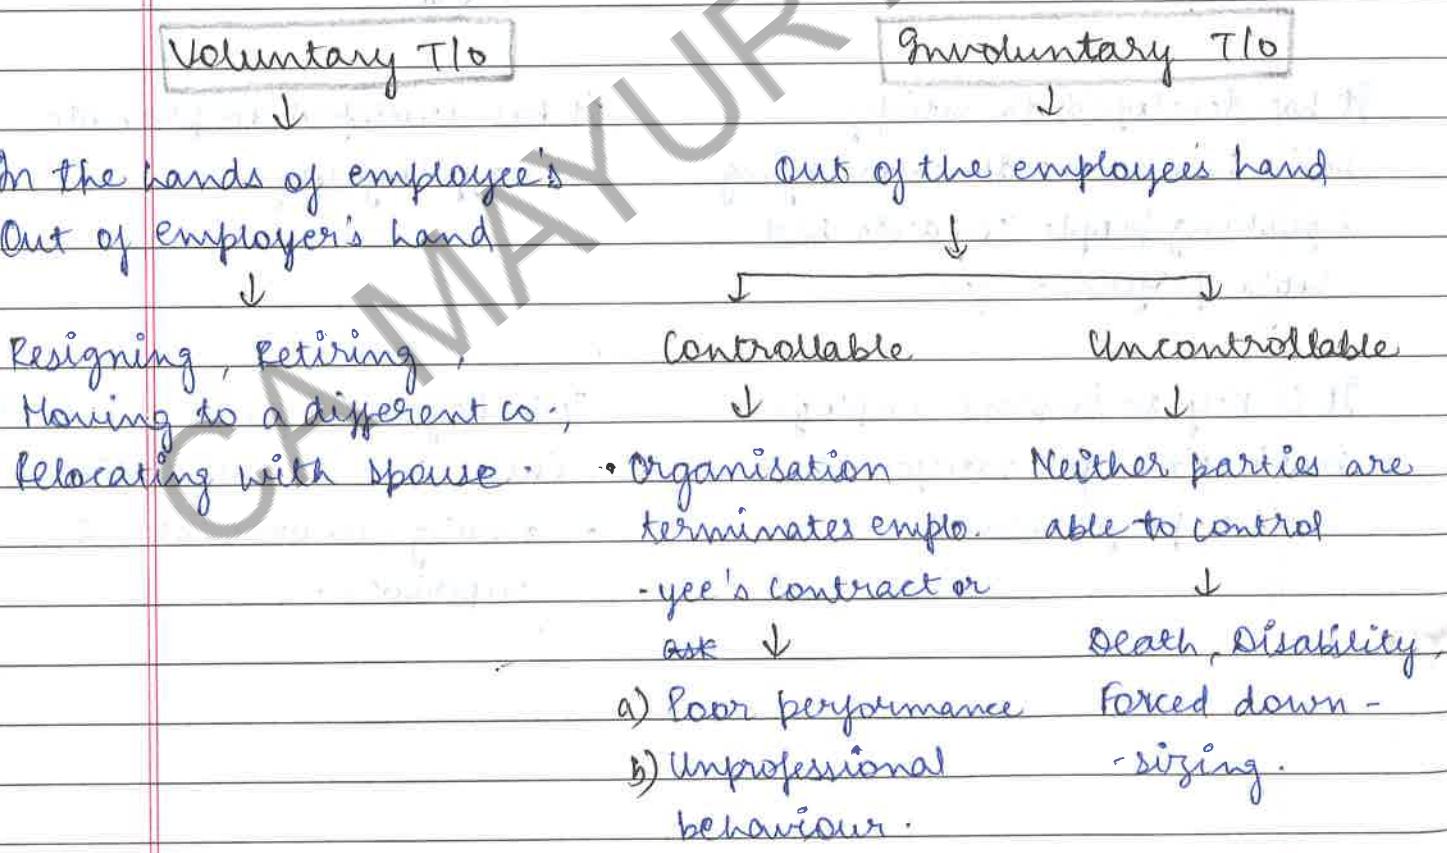 Voluntary T/O
↓
In the hands of employee's
Out of employer's hand
↓
Resigning, Retiring,
Moving to a different co.,
Relocating with spouse.
Involuntary T/O
↓
Out of the employee's hand
↓
Controllable
↓
• Organisation
terminates emplo.
-yee's contract or
ask ↓
a) Poor performance
b) Unprofessional
behaviour.
Uncontrollable
↓
Neither parties are
able to control
↓
Death, Disability,
Forced down-
-sizing.
CA MAYUR